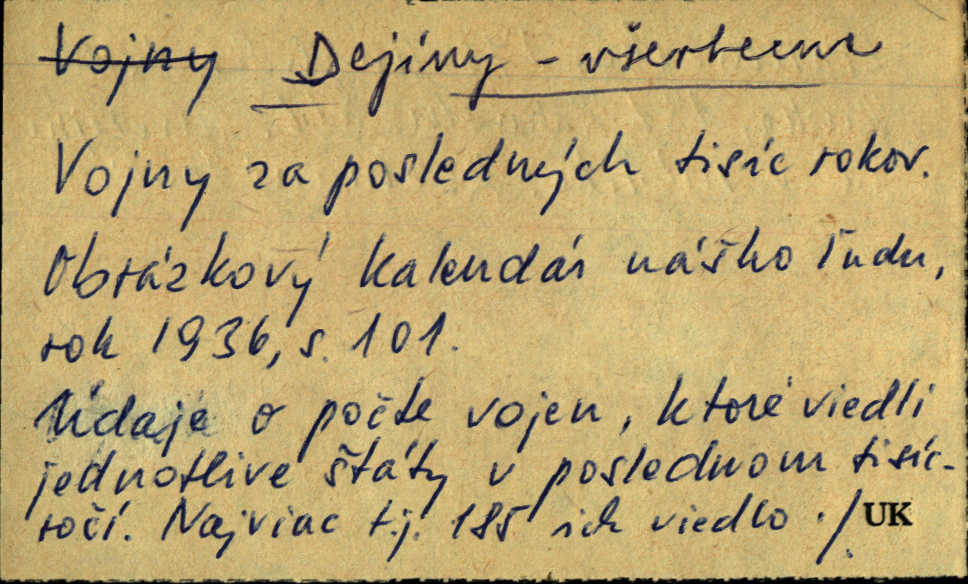 Vojny Dejiny - všeobecne
Vojny za posledných tisíc rokov.
Obrázkový kalendár nášho ľudu,
rok 1936, s. 101.
Údaje o počte vojen, ktoré viedli
jednotlive štáty v poslednom tisíc-
ročí. Najviac t.j. 185 ich viedlo ./. UK